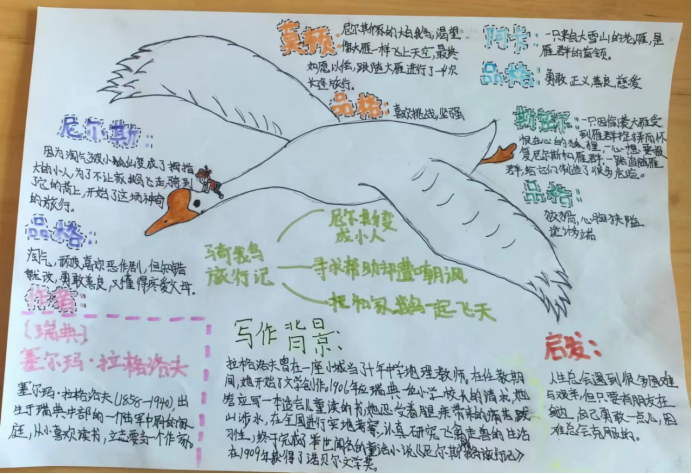 莫顿：
尼尔斯家的大白鹅，渴望
像大雁一样飞上天空，最终
如愿以偿，跟随大雁进行了一次
长途旅行。
品格：喜欢挑战，坚强
阿卡：一只来自大雪山的老雁，是
雁群的首领。
品格：勇敢 正义 善良 慈爱
一只因偷袭大雁受
到雁群捉弄而怀
恨在心的狐狸，一心想要报
复尼尔斯和雁群，一路追随雁
群，给它们制造了很多危险。
品格：
狡猾，心胸狭隘
尼尔斯：
因为淘气多被小狐仙变成了拇指
大的小人，为了不让家鹅飞走，骑到
它的背上，开始了这场神奇
的旅行。
品格：
淘气，调皮喜欢恶作剧，但知错
就改，勇敢善良，又懂得疼爱父母。
骑鹅
旅行记
尼尔斯变
成小人
寻求帮助却遭嘲讽
把和家鹅一起飞天
作者：
[瑞典]
塞尔玛·拉格洛夫
塞尔玛·拉格洛夫(1858-1940)，出
生于瑞典中部的一个陆军中尉的家
庭，从小喜欢读书，立志要当个作家。
写作背景：
拉格洛夫曾在一座小城当了十年中学地理教师，在任教期
间，她开始了文学创作。1906年应瑞典一位小学校长的请求，她
答应写一本适合儿童读的书，她忍
山涉水，在全国进行实地考察，认真研究飞禽走兽的生活
习性，终于完成了举世闻名的童话小说《尼尔斯骑鹅旅行记》
在1909年获得了诺贝尔文学奖。
启发：
人生总会遇到很多困难
与艰辛，但只要有朋友在
身边，自己勇敢一点心，困
难总会克服的。